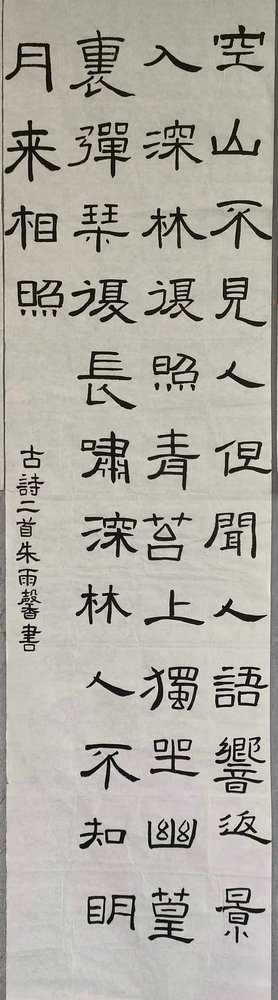 空山不見人但聞人語響返景
入深林復照青苔上獨坐幽篁
裏彈琴復長嘯深林人不知明
月来相照
古詩二首朱雨馨書